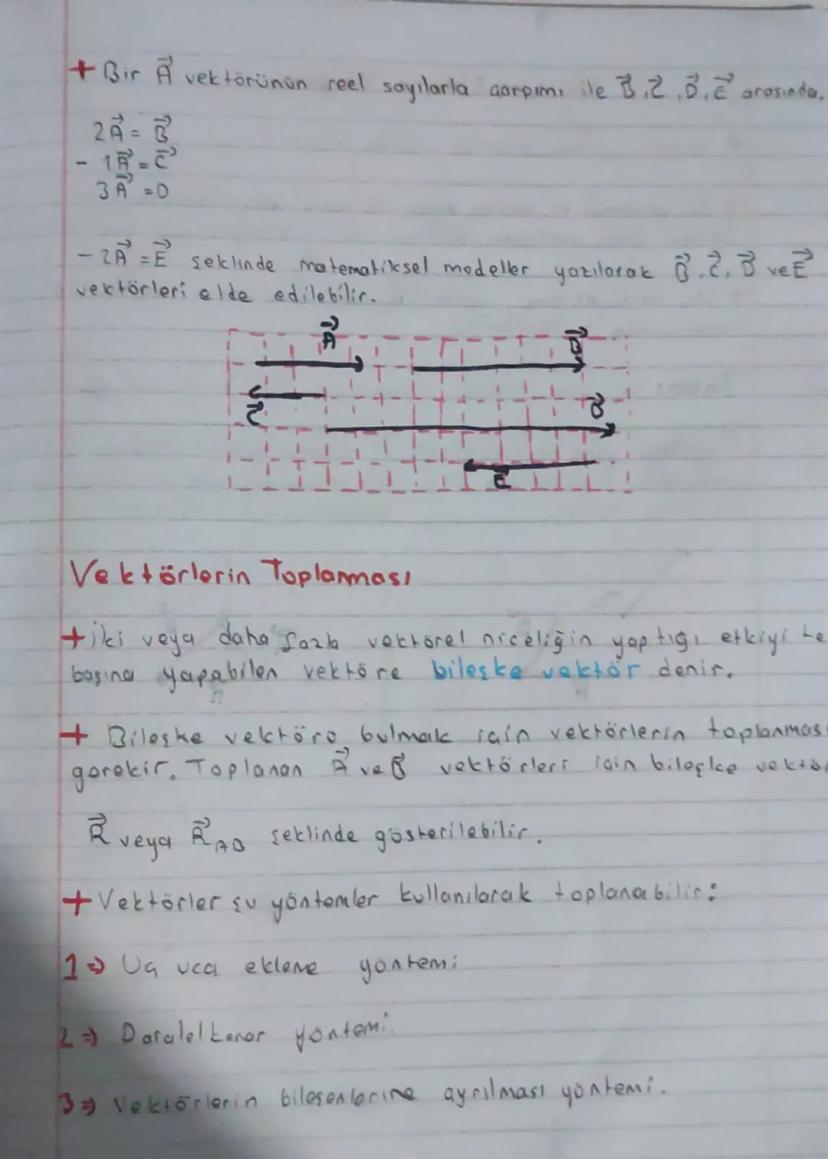 + Bir A⃗ vektörünün reel sayılarla çarpımı ile B⃗, C⃗, D⃗, E⃗ arasında,
2A⃗ = B⃗
- 1A⃗ = C⃗
3A⃗ = D
- 2A⃗ = E⃗ şeklinde matematiksel modeller yazılarak B⃗, C⃗, D⃗ ve E⃗
vektörleri elde edilebilir.
A⃗ B⃗
C⃗ D⃗
E
Vektörlerin Toplanması
+ iki veya daha fazla vektörel niceliğin yaptığı etkiyi te
başına yapabilen vektöre bileşke vektör denir.
+ Bileşke vektörü bulmak için vektörlerin toplanmas
gerekir. Toplanan A⃗ ve B⃗ vektörleri için bileşke vektö
R⃗ veya R⃗AB şeklinde gösterilebilir.
+ Vektörler şu yöntemler kullanılarak toplanabilir:
1⇒ Uç uca ekleme yöntemi
2⇒ Paralelkenar yöntemi.
3⇒ Vektörlerin bileşenlerine ayrılması yöntemi.